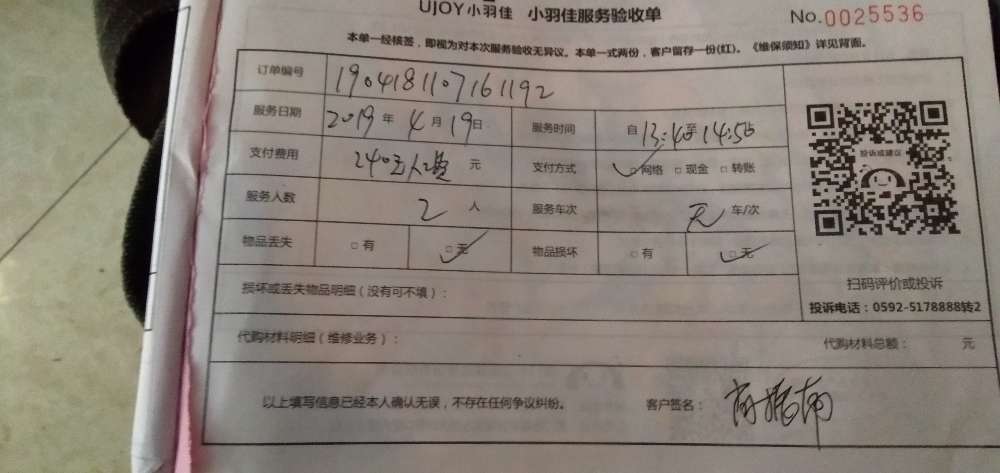 UJOY小羽佳 小羽佳服务验收单 No.0025536
本单一经核签，即视为对本次服务验收无异议。本单一式两份，客户留存一份(红)。《维保须知》详见背面。
订单编号 1904181107161192
服务日期 2019年4月19日 服务时间 自13:40至14:50
支付费用 240 元 支付方式 ☑网络 □现金 □转账
服务人数 2人 服务车次 无 车/次
物品丢失 □有 ☑无 物品损坏 □有 ☑无
投诉或建议
扫码评价或投诉
投诉电话：0592-5178888转2
损坏或丢失物品明细（没有可不填）：
代购材料明细（维修业务）： 代购材料总额： 元
以上填写信息已经本人确认无误，不存在任何争议纠纷。 客户签名：